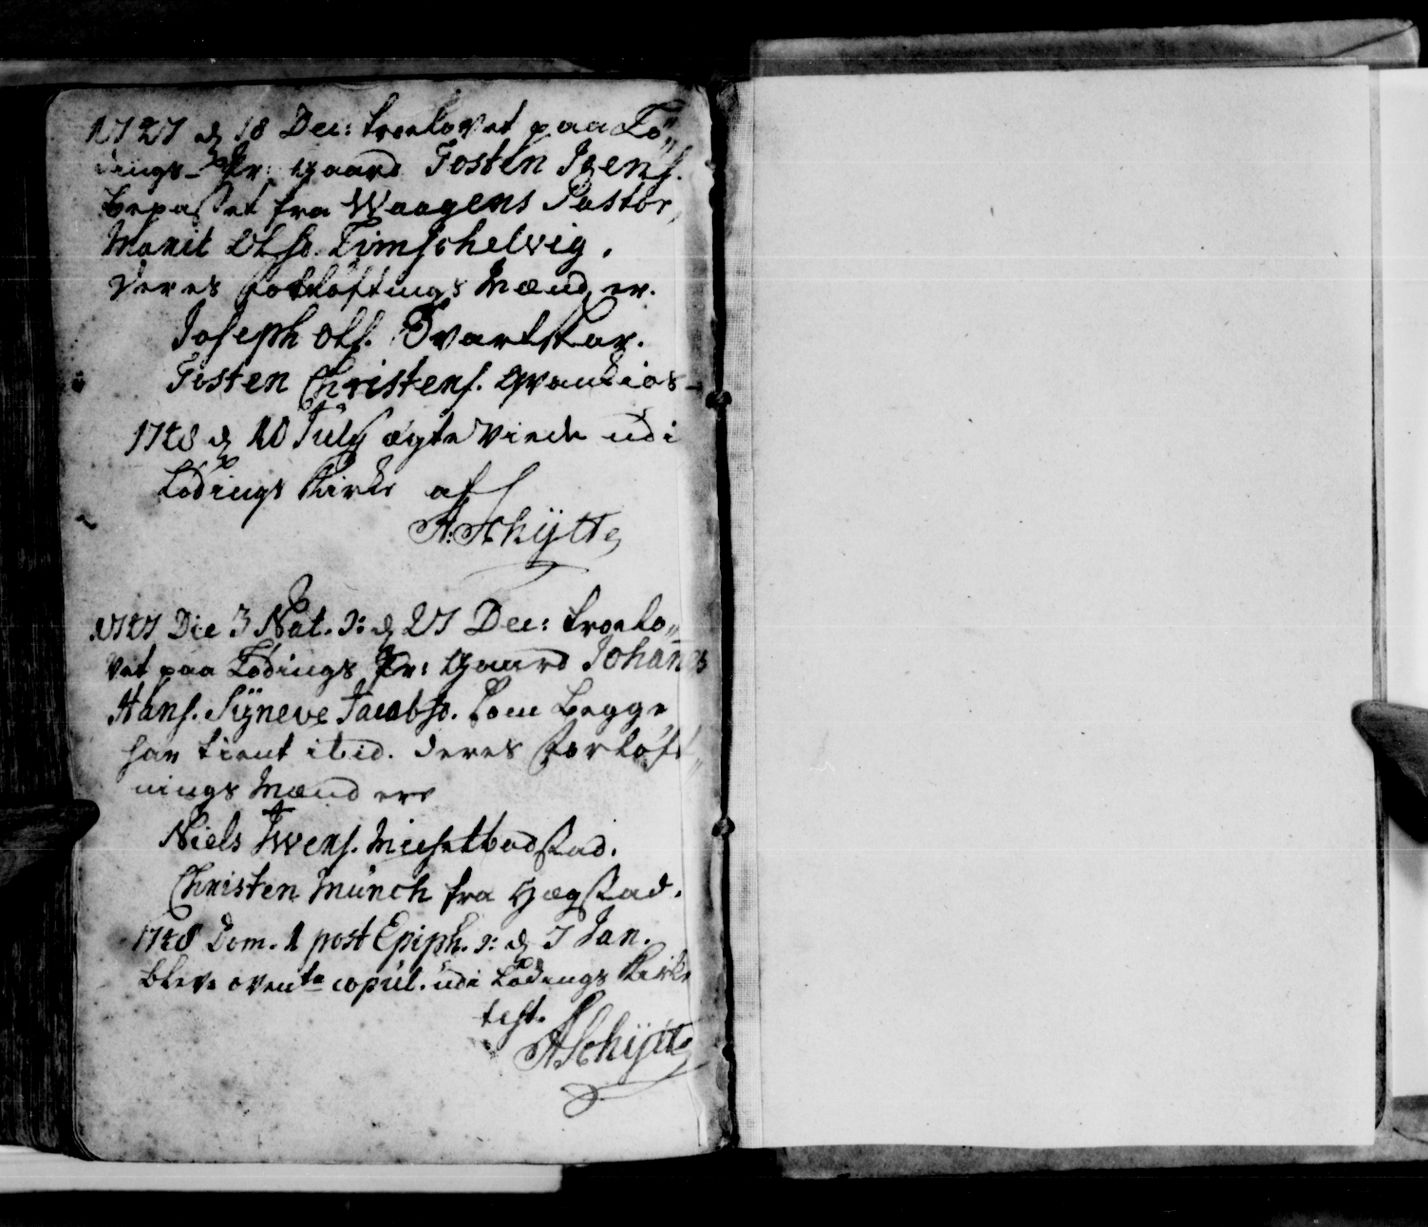 1747 d 18 Dec: troelovet paa Lø„
dings Pr: gaard Tosten Iver s.
bepasset fra Waagens Pastor,
Marit Olsd. Timschelvig.
deres forløftings Mænd er.
Joseph Ols. Svartskar.
Tosten Christens.
1748 d 10 July ægte viede udi
Lødings Kirke af
A: Schÿtte
1747 Die 3 Nat. ɔ: d 27 Dec: troelo„
vet paa Lødings Pr: gaard Johanes
Hans. Sÿneve Jacobsd. som begge
har tient ibid. deres forløft„
nings Mænd ere
Niels Iwers.
Christen Münch fra Hægstad.
1748 Dom. 1 post Epiph. ɔ: d 7 Jan.
bleve ovente copul. udi Lødings Kirke
test.
A Schÿtte